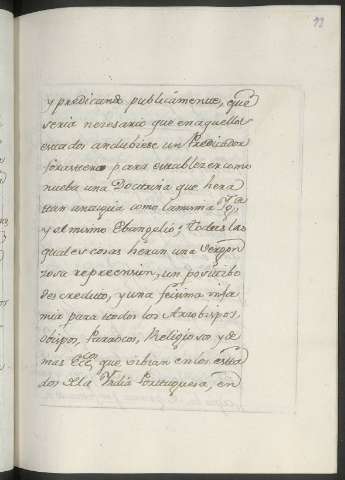 y predicando publicamente, que
seria nesesario que en aquellos
estados andubiese un Predicador
forastero para establezer como
nueba una Doctrina que hera
tan antigua como la misma Ygª
y el mismo Ebangelio; todas las
quales cosas heran una Vergon
zosa reprecension, un positibo
descredito, y una feisima infa
mia para todos los Arzobispos,
obispos, Parrocos, Religiosos, y de
mas Eccos que vibian en los esta
dos de la Yndia Portuguesa, en